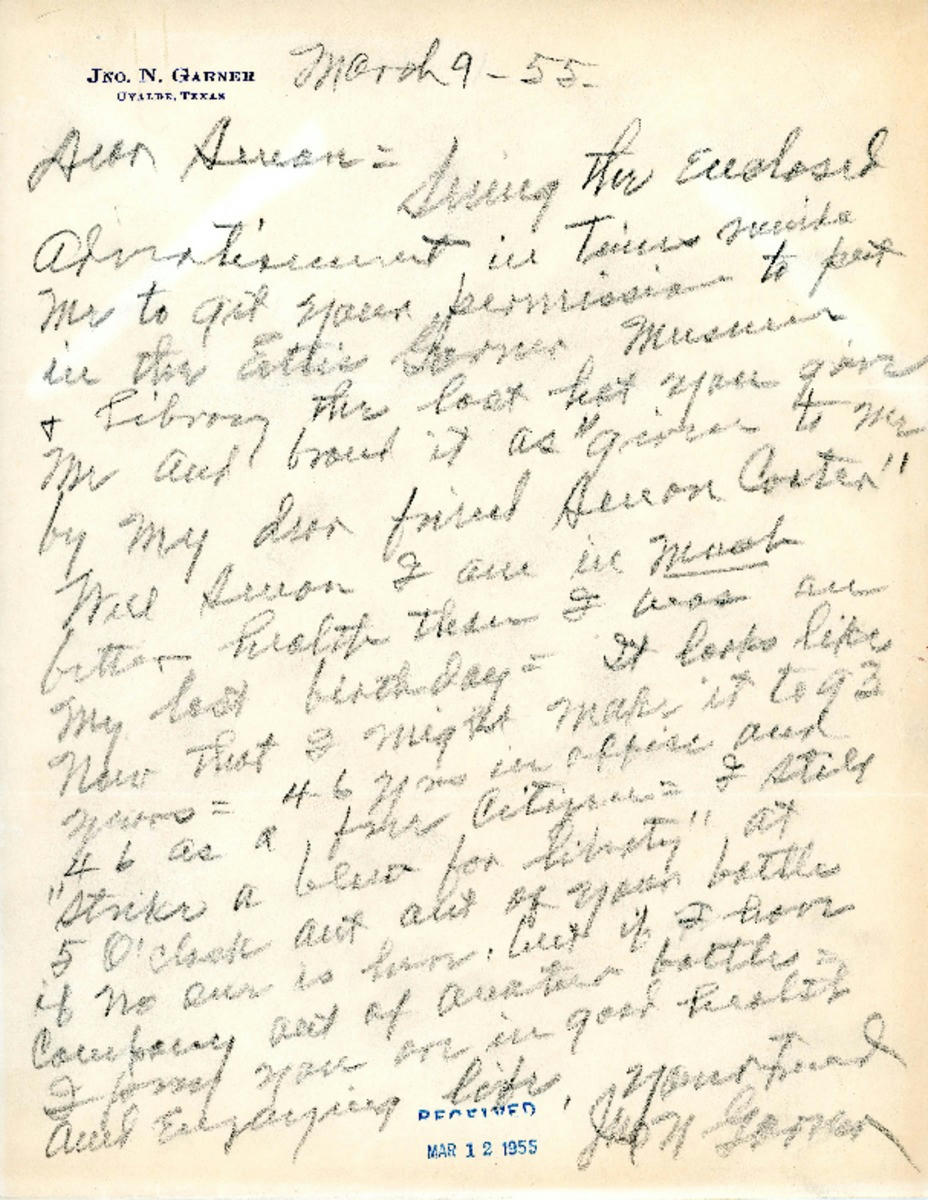 JNO. N. GARNER
UVALDE, TEXAS
March 9 - 55 -
Dear Amon = Seeing the enclosed
Advertisement in Times
Me to get your permission to put
in the Ettie Garner Museum
+ Library the last hat you gave
Me and brand it as "given to Me
by My dear friend Amon Carter"
Well Amon I am in Much
better health than I was on
My last birthday = It looks like
Now that I might make it to 93
years = 46 yrs in office and
46 as a free Citizen = I still
"strike a blow for liberty" at
5 O'clock out of your bottle
if no one is here, but if I have
Company out of another bottle =
I you are in good health
And Enjoying life, Your friend
Jno N Garner
RECEIVED
MAR 12 1955